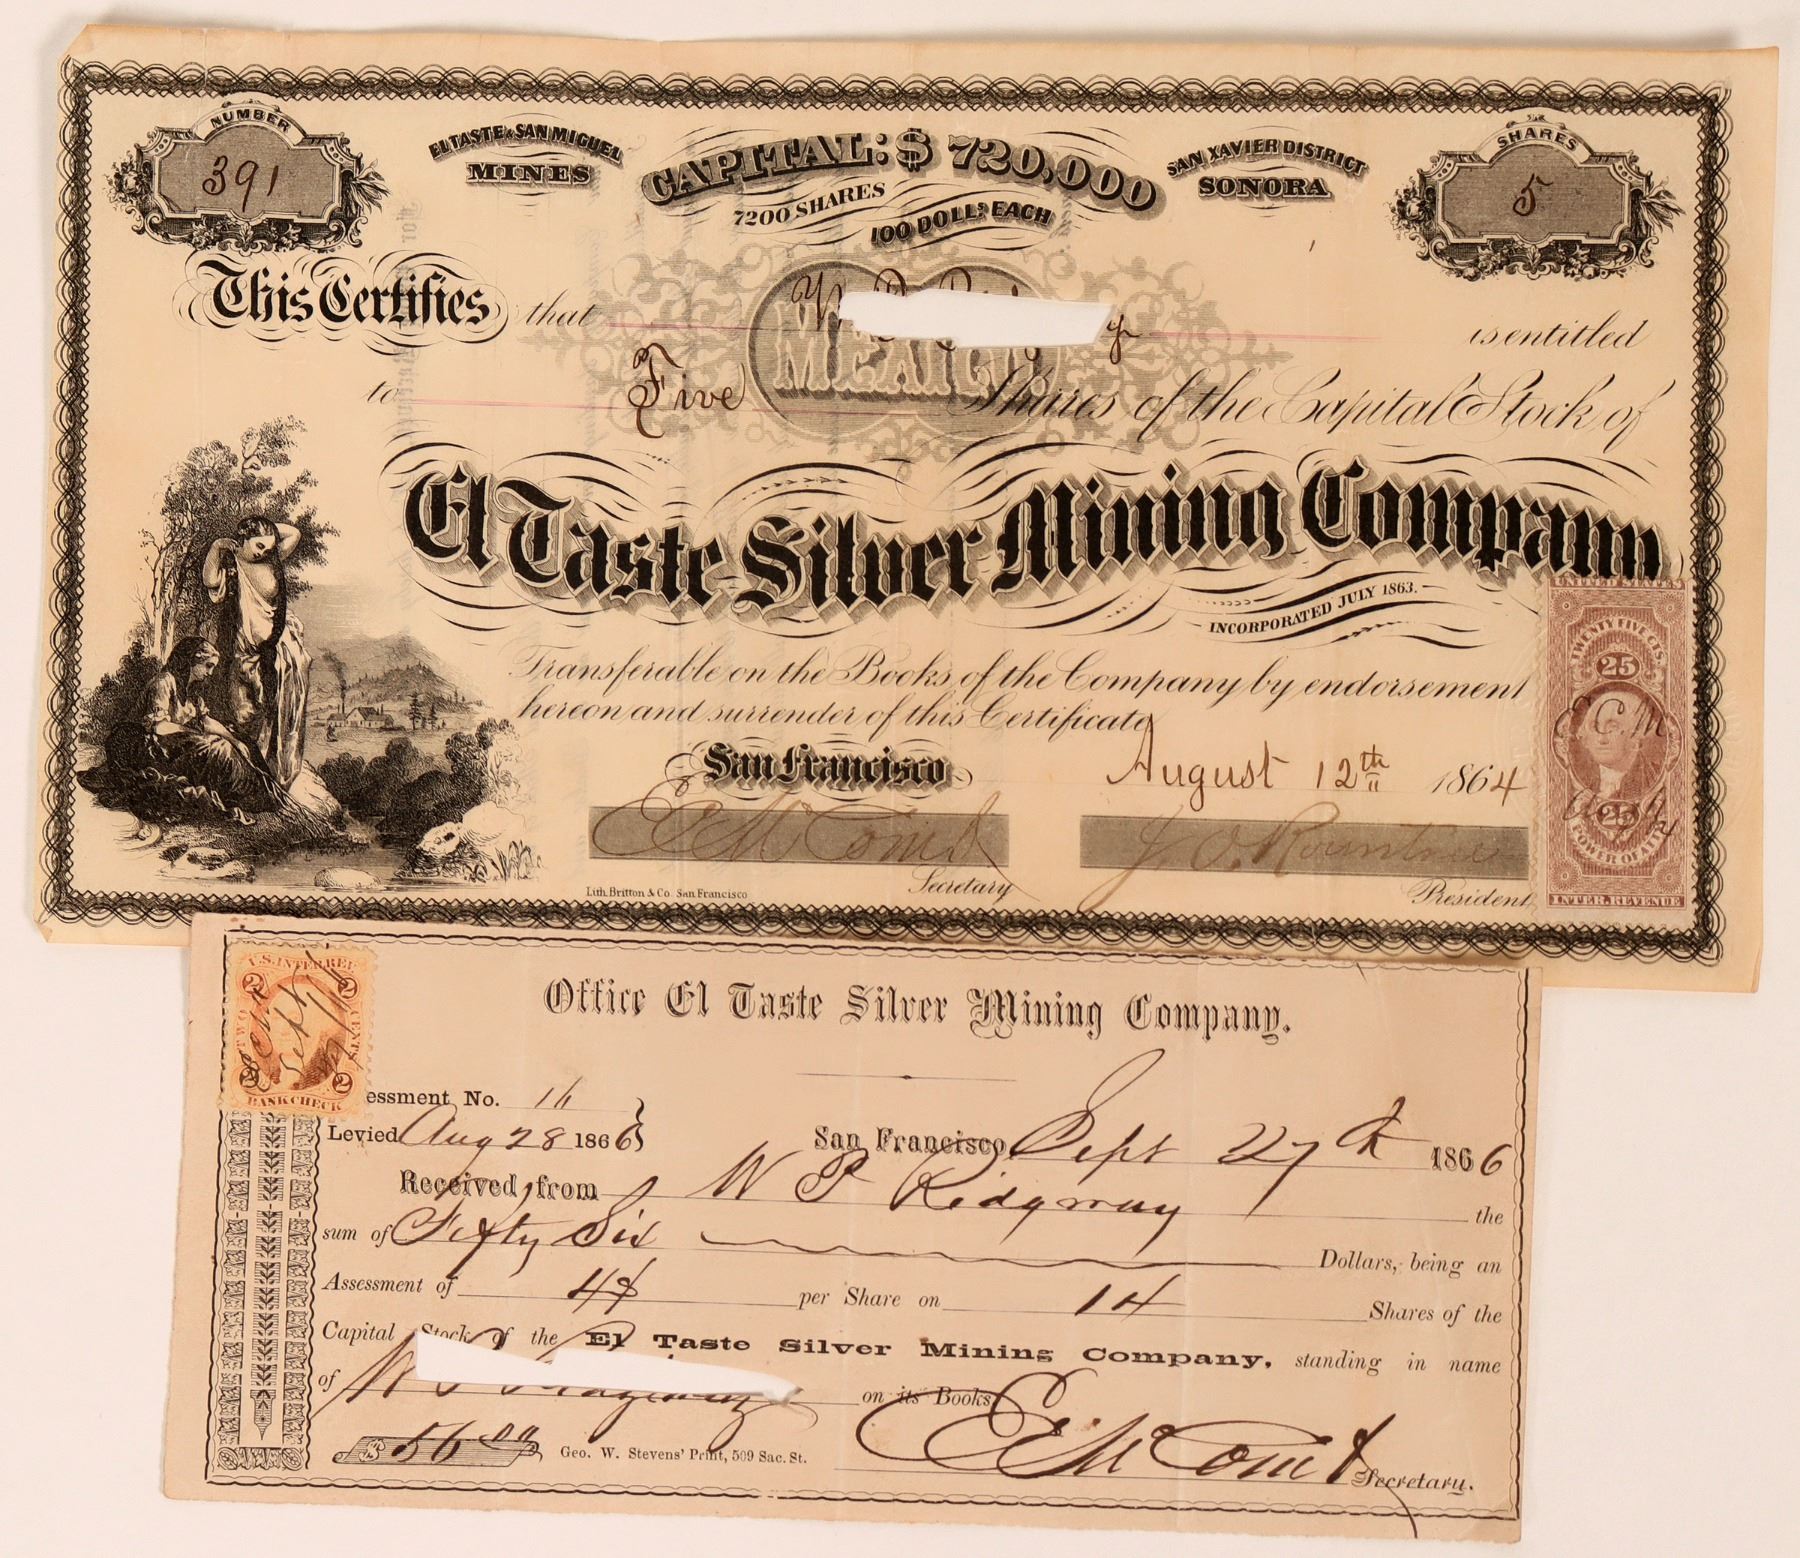 NUMBER
391
EL TASTE & SAN MIGUEL
MINES
CAPITAL: $ 720,000
7200 SHARES
100 DOLLS EACH
SAN XAVIER DISTRICT
SONORA
SHARES
5
This Certifies that is entitled
MEXICO
to Five Shares of the Capital Stock of
El Taste Silver Mining Company
INCORPORATED JULY 1863.
Transferable on the Books of the Company by endorsement
hereon and surrender of this Certificate
San Francisco August 12th 1864
E McComd J. O. Rountree
Secretary President
Lith. Britton & Co. San Francisco
UNITED STATES
TWENTY FIVE CTS.
25
E. C. M.
25
POWER OF AT'Y
INTER. REVENUE
U.S. INTER. REV.
TWO CENTS
2 2
Sept
2 2
BANK CHECK
Office El Taste Silver Mining Company.
essment No. 16
Levied Aug 28 1866
San Francisco Sept 27th 1866
Received from W P Ridgway the
sum of Fifty Six Dollars, being an
Assessment of 4$ per Share on 14 Shares of the
Capital Stock of the El Taste Silver Mining Company, standing in name
of on its Books
$ 56.00 Geo. W. Stevens' Print, 509 Sac. St.
E McComd Secretary.